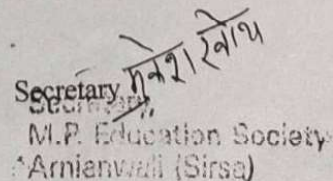 Secretary मुकेश रनोय
Secretary
M.P. Education Society
Arnianwali (Sirsa)